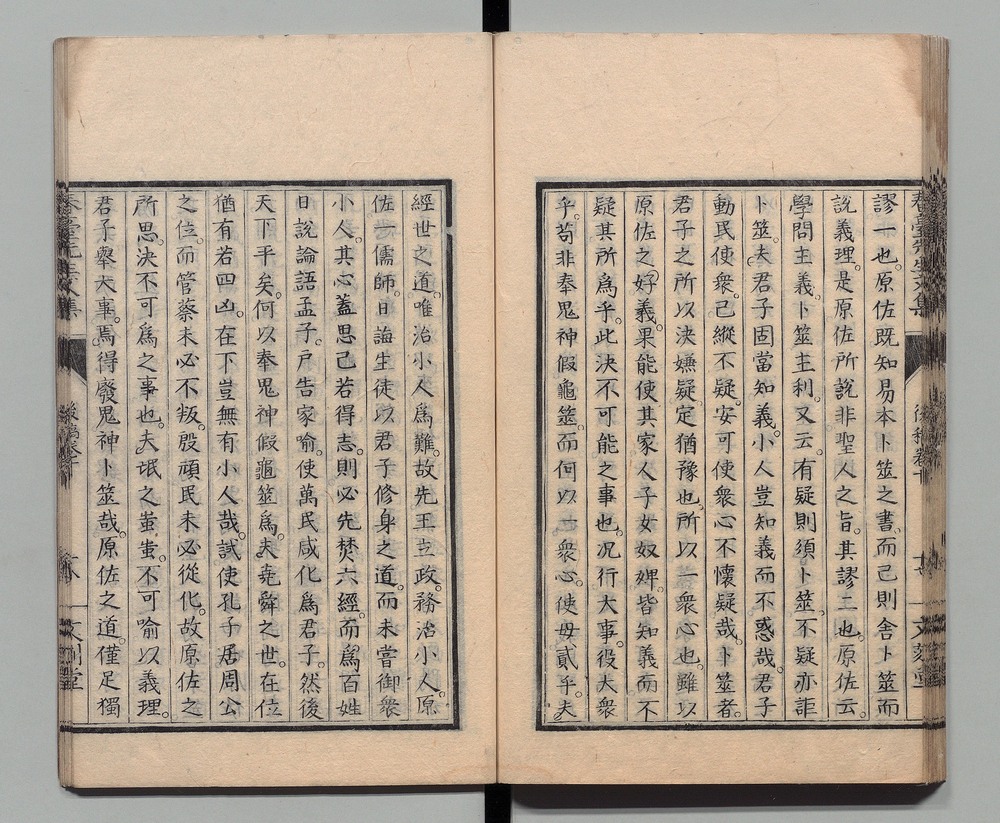 謬一也。原佐既知易本卜筮之書。而己則舍卜筮而
說義理。是原佐所說非聖人之旨。其謬二也。原佐云。
學問主義。卜筮主利。又云。有疑則須卜筮。不疑亦詎
卜筮。夫君子固當知義。小人豈知義而不惑哉。君子
動民使衆。己縱不疑。安可使衆心不懷疑哉。卜筮者。
君子之所以決嫌疑定猶豫也。所以一衆心也。雖以
原佐之好義。果能使其家人子女奴婢皆知義而不
疑其所爲乎。此決不可能之事也。况行大事。役大衆
乎。苟非奉鬼神假龜筮。而何以一衆心。使毋貳乎。夫
經世之道。唯治小人爲難。故先王立政。務治小人。原
佐一儒師。日誨生徒以君子修身之道。而未嘗御衆
小人。其心蓋思己若得志。則必先焚六經。而爲百姓
日說論語孟子。戶告家喻。使萬民咸化爲君子。然後
天下平矣。何以奉鬼神假龜筮爲。夫堯舜之世。在位
猶有若四凶。在下豈無有小人哉。試使孔子居周公
之位。而管蔡未必不叛。殷頑民未必從化。故原佐之
所思。決不可爲之事也。夫氓之蚩蚩。不可喻以義理。
君子舉大事。焉得廢鬼神卜筮哉。原佐之道。僅足獨